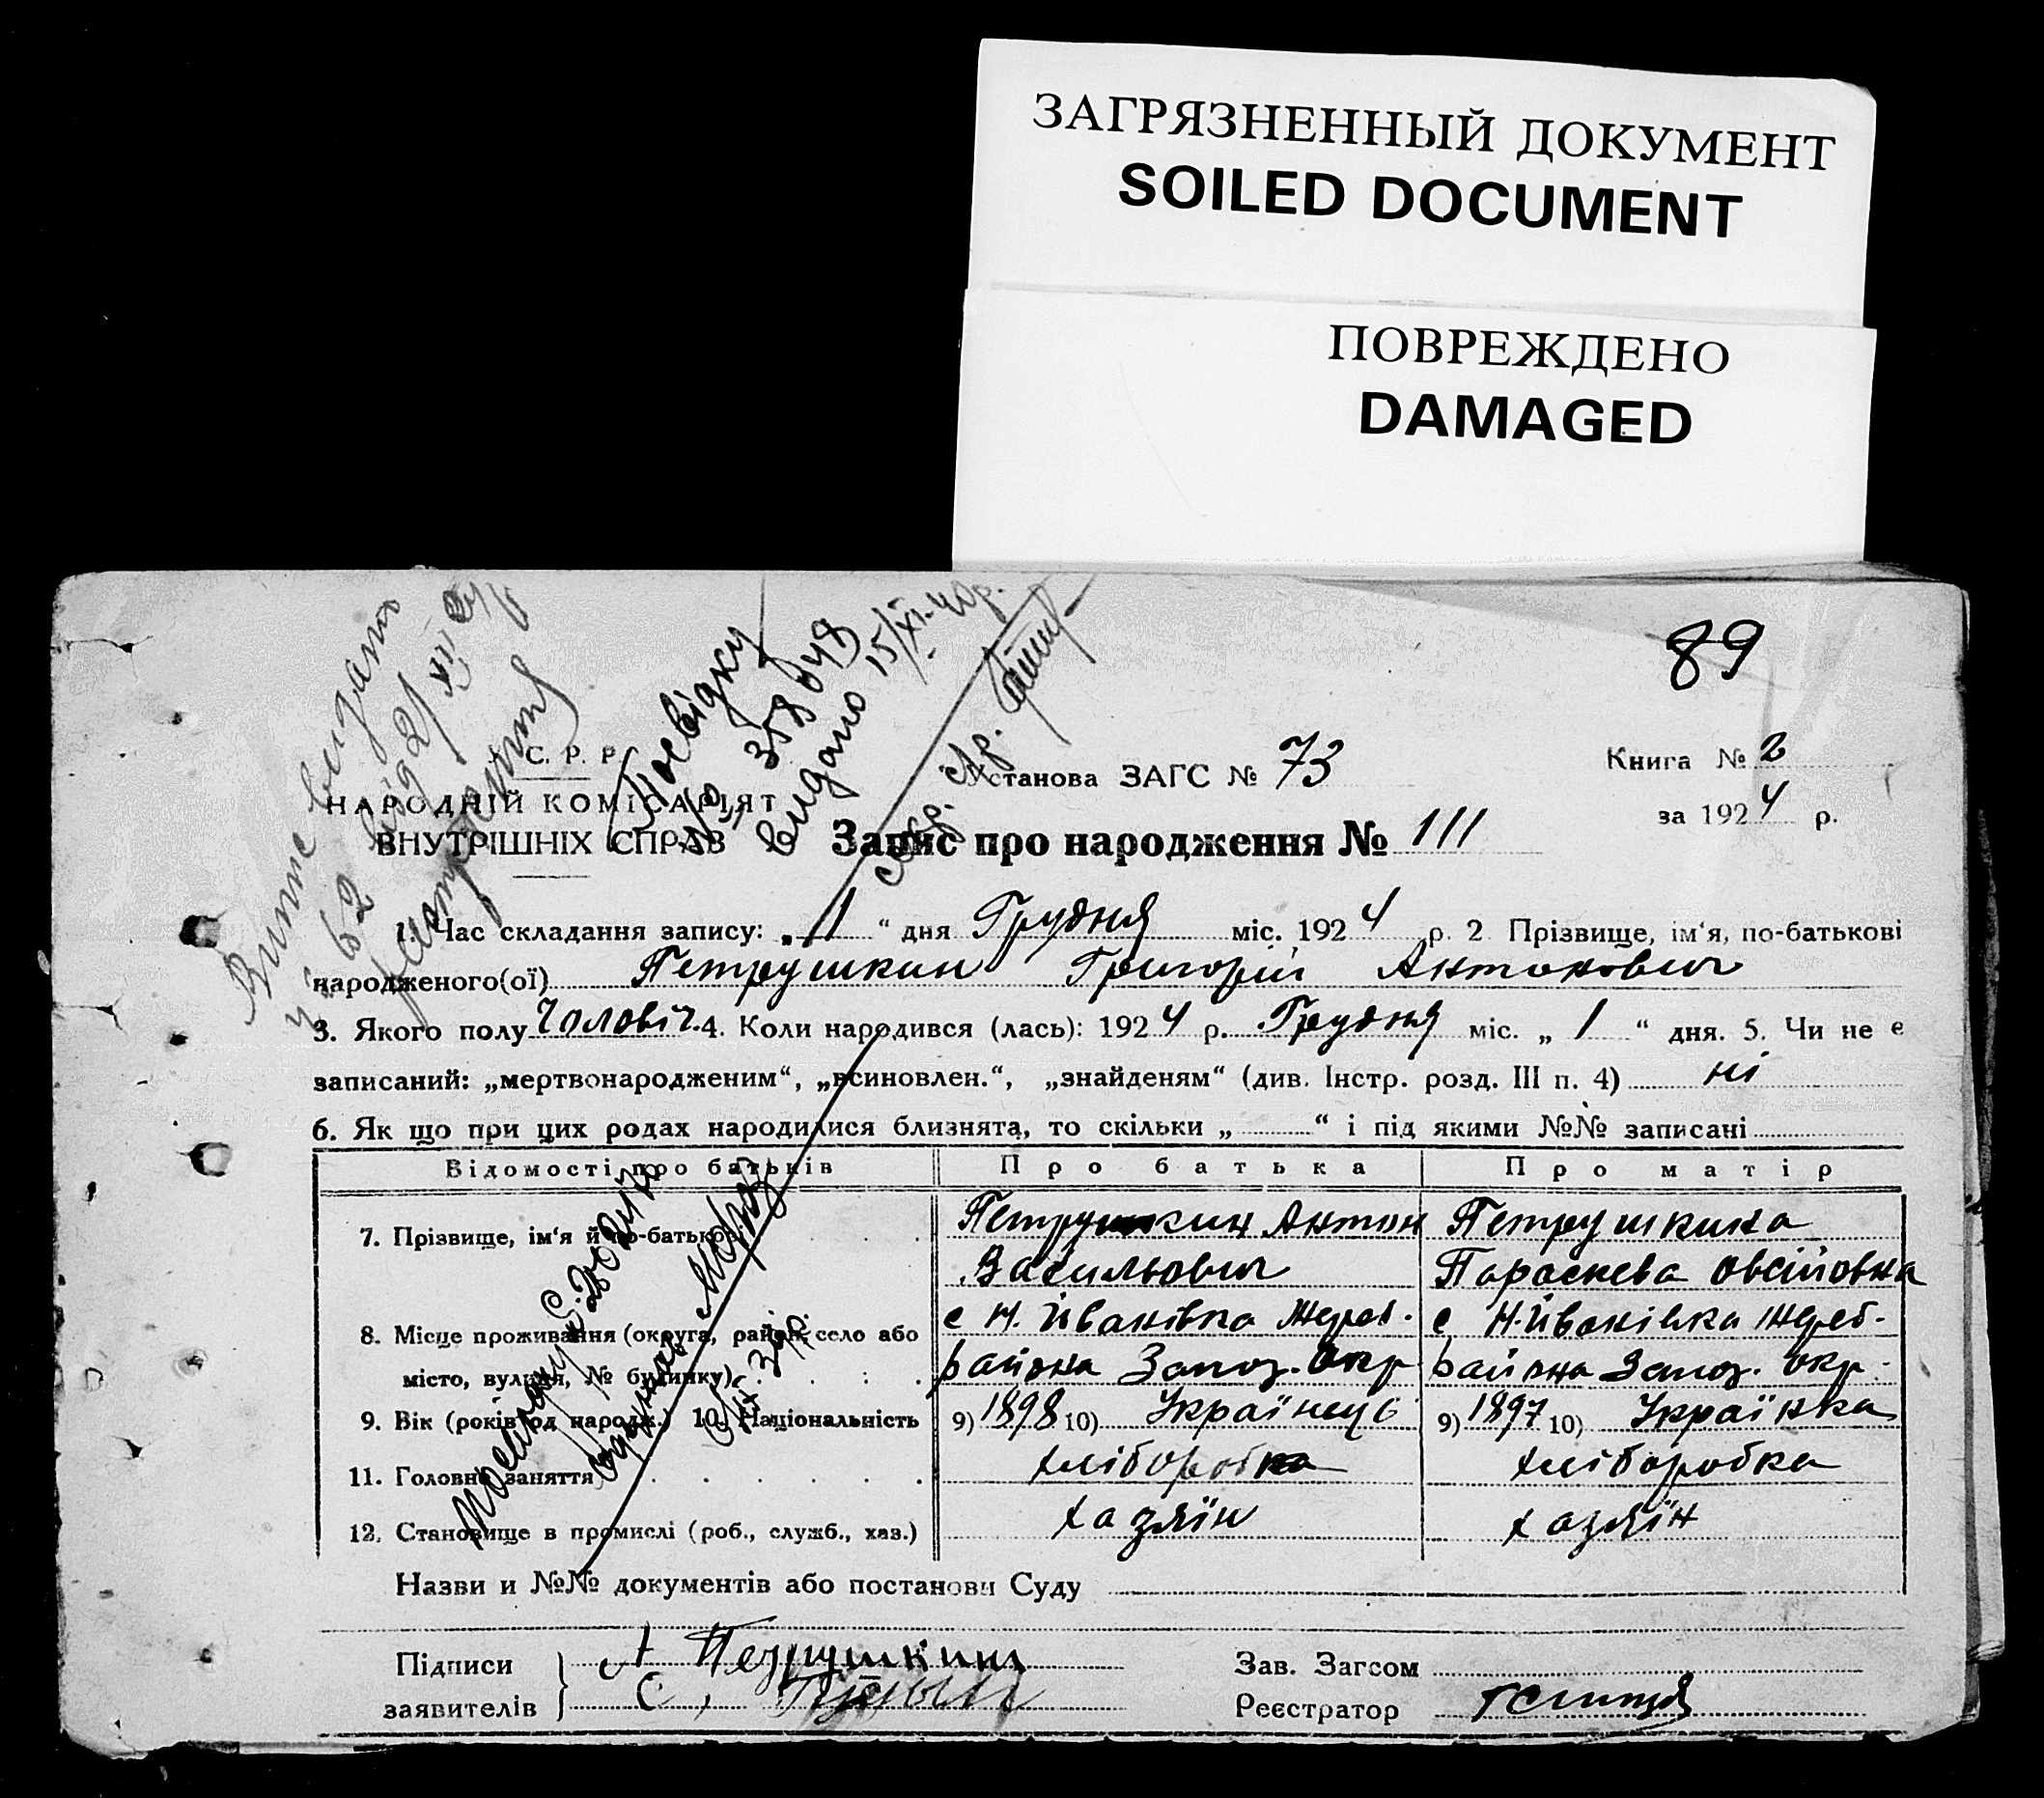 ЗАГРЯЗНЕННЫЙ ДОКУМЕНТ
SOILED DOCUMENT
ПОВРЕЖДЕНО
DAMAGED
89
Витяг видано
62 від 2/
Посвідку
№ 358648
видано 15/XI-40р.
С. Р. Р.
НАРОДНІЙ КОМІСАРІЯТ
ВНУТРІШНІХ СПРАВ
Установа ЗАГС № 73
Книга № 2
за 1924 р.
Запис про народження № 111
1. Час складання запису: „1“ дня Грудня міс. 1924 р. 2 Прізвище, ім‘я, по-батькові
народженого(ої) Петрушкин Григорій Антонович
3. Якого полу Чоловіч. 4. Коли народився (лась): 1924 р. Грудня міс. „ 1 “ дня. 5. Чи не є
записаний: „мертвонародженим“, „всиновлен.“, „знайденям“ (див. Інстр. розд. III п. 4) ні
6. Як що при цих родах народилися близнята, то скільки „ “ і під якими №№ записані
Відомості про батьків Про батька Про матір
7. Прізвище, ім‘я й по-батькові Петрушкин Антон Петрушкина
Васильович Параскева Овсійовна
8. Місце проживання (округа, район, село або с Н. Йванівка Жереб. с Н. Йванівка Жереб.
місто, вулиця, № будинку) района Запоз. Окр района Запоз. Окр.
9. Вік (років од народж.) 10. Національність 9) 1898 10) Українец 9) 1897 10) Українка
11. Головне заняття хліборобка хліборобка
12. Становище в промислі (роб., служб., хаз.) хазяїн хазяїн
Назви и №№ документів або постанови Суду
Підписи А Петрушкин Зав. Загсом
заявителів С, Реєстратор